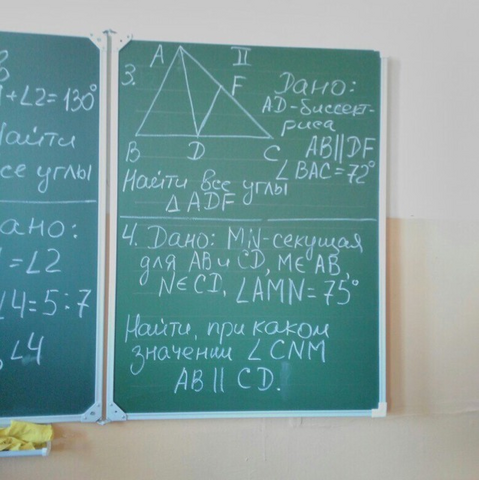 +∠2=130°
Найти
все углы
Дано:
=∠2
∠4=5:7
∠4
II
3.
A
F
B
D
C
Дано:
AD-биссект-
риса
AB||DF
∠BAC=72°
Найти все углы
Δ ADF
4. Дано: MN-секущая
для AB и CD, M∈AB,
N∈CD, ∠AMN=75°
Найти, при каком
значении ∠CNM
AB || CD.